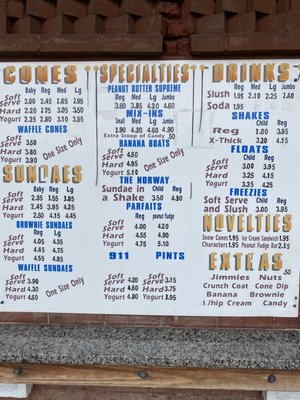 CONES
Baby Reg Med Lg
Soft Serve 2.00 2.45 2.85 2.95
Hard 2.20 2.85 3.25 3.95
Yogurt 2.10 2.75 3.05 3.50
WAFFLE CONES
Soft Serve 3.50
Hard 3.90
Yogurt 3.80
One Size Only
SUNDAES
Baby Reg Med Lg
Soft Serve 2.45 3.55 3.85
Hard 2.65 3.95 4.25
Yogurt 2.50 4.15 4.45
BROWNIE SUNDAES
Reg Lg
Soft Serve 4.05 4.35
Hard 4.45 4.75
Yogurt 4.55 4.85
WAFFLE SUNDAES
Soft Serve 3.90
Hard 4.30
Yogurt 4.50
One Size Only
"SPECIALTIES"
PEANUT BUTTER SUPREME
Reg Med Lg Jumbo
3.60 3.85 4.30 4.60
MIX-INS
Small Med Lg Jumbo
3.90 4.30 4.60 4.90
Extra Scoop of Candy .50
BANANA BOATS
Soft Serve 4.50
Hard 4.95
Yogurt 5.10
One Size Only
THE NORWAY
Sundae in a Shake
Child Reg
3.50 4.30
PARFAITS
Reg peanut fudge
Soft Serve 4.20 4.50
Hard 4.55 4.90
Yogurt 4.75 5.10
911 PINTS
Soft Serve 4.15
Hard 4.60
Yogurt 4.80
Soft Serve 3.15
Hard 3.75
Yogurt 3.95
DRINKS
Reg Med Lg Jumbo
Slush 1.95 2.10 2.25 2.40
Soda 1.95
SHAKES
Child Reg
Reg 3.00 3.95
X-Thick 3.20 4.15
FLOATS
Child Reg
Soft Serve 3.00 3.95
Hard 3.20 4.15
Yogurt 3.35 4.20
FREEZIES
Child Reg
Soft Serve and Slush 3.00 3.95
NOVELTIES
Snow Cones 1.95 Ice Cream Sandwich 1.95
Characters 1.95 Peanut Fudge Bar 2.75
EXTRAS
Jimmies Nuts .50
Crunch Coat Cone Dip
Banana Brownie
Whip Cream Candy